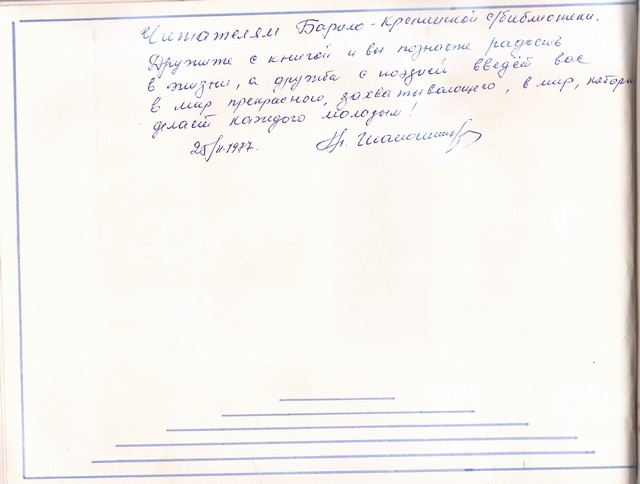 Читателям Барило-Крепинской с/библиотеки.
Дружите с книгой и вы познаете радость
в жизни, а дружба с поэзией введёт вас
в мир прекрасного, захватывающего, в мир, которы
делает каждого молодым!
25/II-1977.